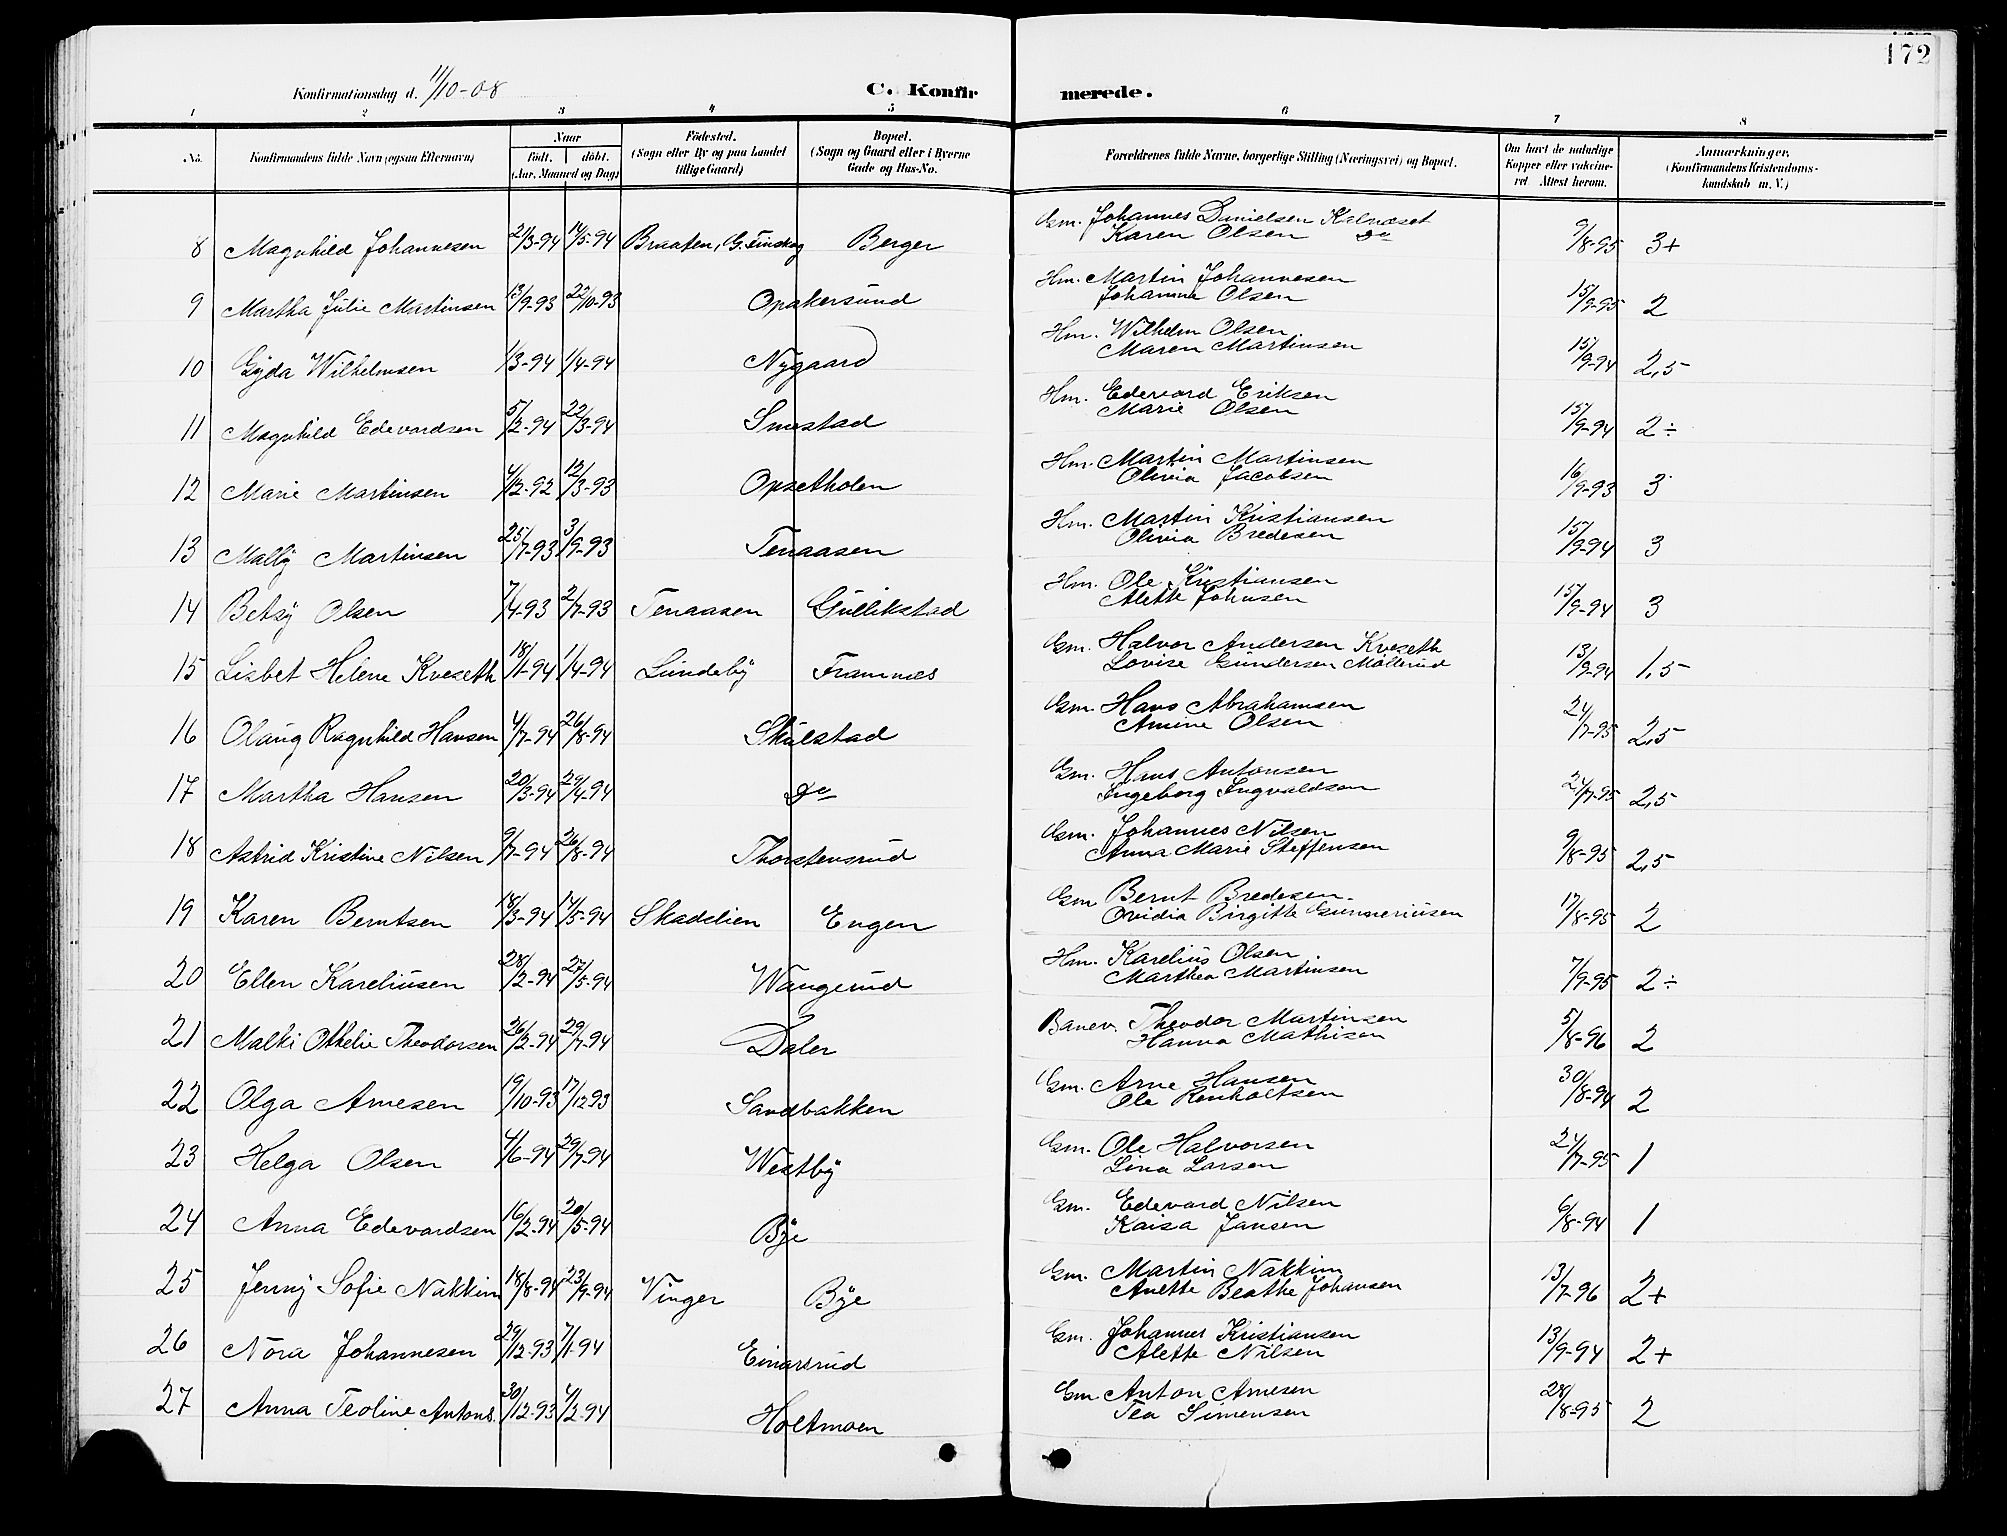 172
Konfirmationsdag d. 11/10-08
C. Konfirmerede.
1 2 3 4 5 6 7 8
No. Konfirmandens fulde Navn (ogsaa Efternavn) Naar født. døbt. (Aar, Maaned og Dag) Fødested. (Sogn eller By og paa Landet tillige Gaard) Bopæl. (Sogn og Gaard eller i Byerne Gade og Hus-No. Forældrenes fulde Navne, borgerlige Stilling (Næringsvei) og Bopæl. Om havt de naturlige Kopper eller vaccineret. Attest herom. Anmærkninger. (Konfirmandens Kristendomskundskab m. V.)
8 Magnhild Johannesen 21/3-94 14/5-94 Braaten, G. Finskog Berger Gm. Johannes Danielsen Kalnæset Karen Olsen do 9/8-95 3+
9 Martha Julie Martinsen 13/9-93 22/10-93 Opakersund Hm. Martin Johannesen Johanna Olsen 15/9-95 2
10 Gyda Wilhelmsen 1/3-94 1/4-94 Nygaard Hm. Wilhelm Olsen Maren Martinsen 15/9-94 2,5
11 Magnhild Edevardsen 5/2-94 22/3-94 Smestad Hm. Edevard Eriksen Marie Olsen 15/9-94 2÷
12 Marie Martinsen 4/12-92 12/3-93 Opsetholen Hm. Martin Martinsen Olivia Jacobsen 16/9-93 3
13 Mally Martinsen 25/7-93 3/9-93 Tenaasen Hm. Martin Kristiansen Olivia Bredesen 15/9-94 3
14 Betsy Olsen 7/4-93 2/7-93 Tenaasen Gullikstad Hm. Ole Kristiansen Alette Johnsen 15/9-94 3
15 Lisbet Helene Kveseth 18/1-94 1/4-94 Lundeby Framnes Gm. Halvor Andersen Kveseth Lovise Gundersen Møllerud 13/9-94 1,5
16 Olaug Ragnhild Hansen 4/7-94 26/8-94 Skulstad Gm. Hans Abrahamsen Amine Olsen 24/7-95 2,5
17 Martha Hansen 20/3-94 29/4-94 do Gm. Hans Antonsen Ingeborg Ingvaldsen 24/7-95 2,5
18 Astrid Kristine Nilsen 9/7-94 26/8-94 Thorstensrud Gm. Johannes Nilsen Anna Marie Steffensen 9/8-95 2,5
19 Karen Berntsen 18/3-94 14/5-94 Skaddlien Engen Gm Bernt Bredesen Ovidia Birgitte Gunneriusen 17/8-95 2
20 Ellen Kareliusen 28/2-94 27/5-94 Wangerud Hm. Karelius Olsen Marthea Martinsen 7/9-95 2÷
21 Malki Othelie Theodorsen 26/2-94 29/7-94 Daler Banev. Theodor Martinsen Hanna Mathisen 5/8-96 2
22 Olga Arnesen 19/10-93 17/12-93 Sandbakken Gm. Arne Hansen Ole Renholtsen 30/8-94 2
23 Helga Olsen 4/6-94 29/7-94 Westby Gm. Ole Halvorsen Lina Larsen 24/7-95 1
24 Anna Edevardsen 16/2-94 20/5-94 Bye Gm. Edevard Nilsen Kaisa Jansen 6/8-94 1
25 Jenny Sofie Nakkim 18/8-94 23/9-94 Vinger Bye Gm. Martin Nakkim Anette Beathe Johansen 13/7-96 2+
26 Nora Johannesen 29/12-93 7/1-94 Einarsrud Gm. Johannes Kristiansen Alette Nilsen 13/9-94 2+
27 Anna Teoline Antons. 30/12-93 4/2-94 Holtmoen Gm Anton Arnesen Tea Simensen 28/8-95 2